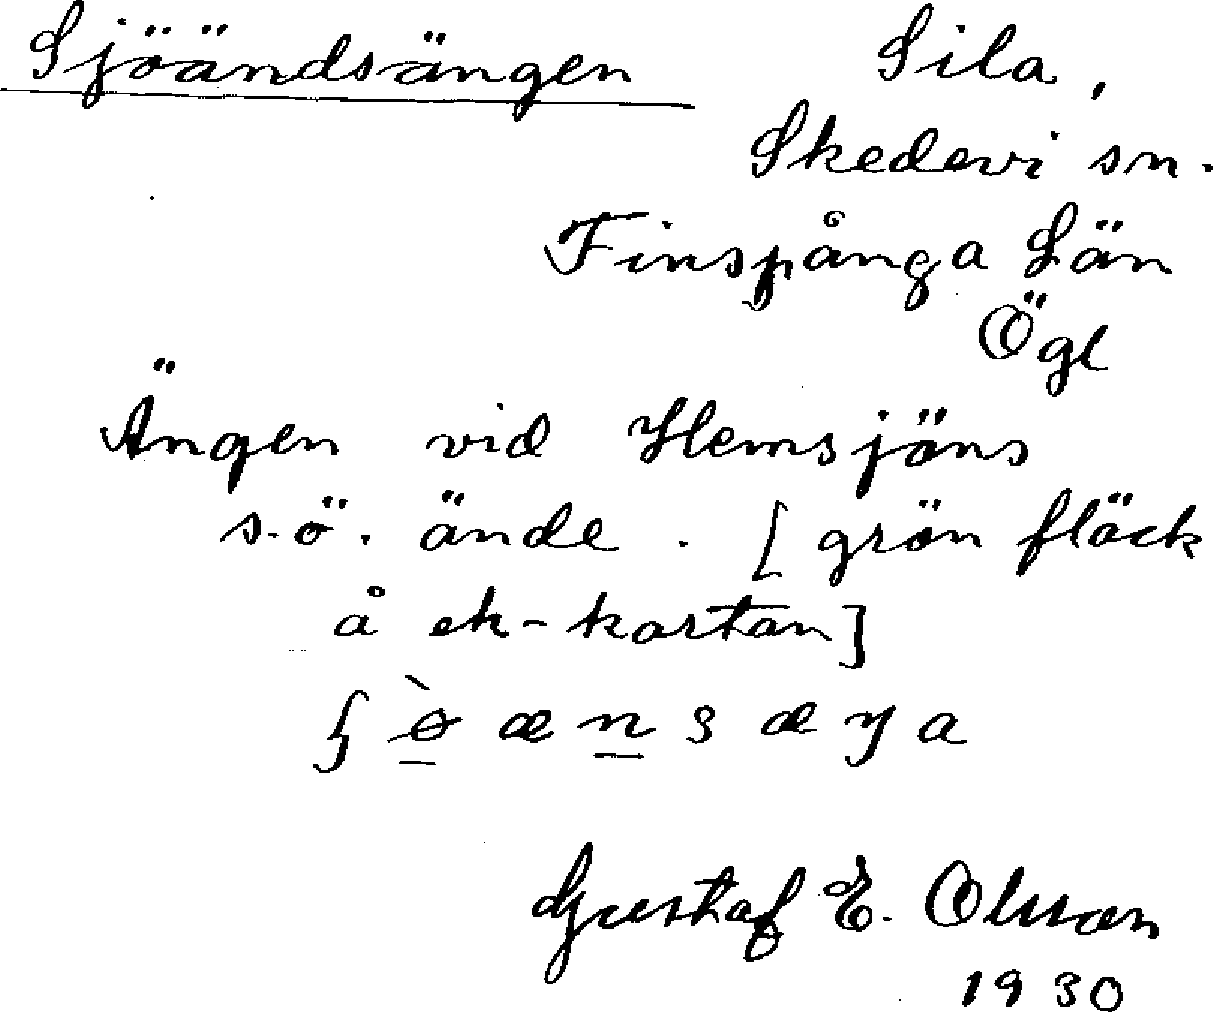 Sjöändsängen Sila,
Skedevi sn.
Finspånga Län
Ögl
Ängen vid Hemsjöns
s.ö. ände. [grön fläck
å ek-kartan]
Gustaf E. Olsson
1930